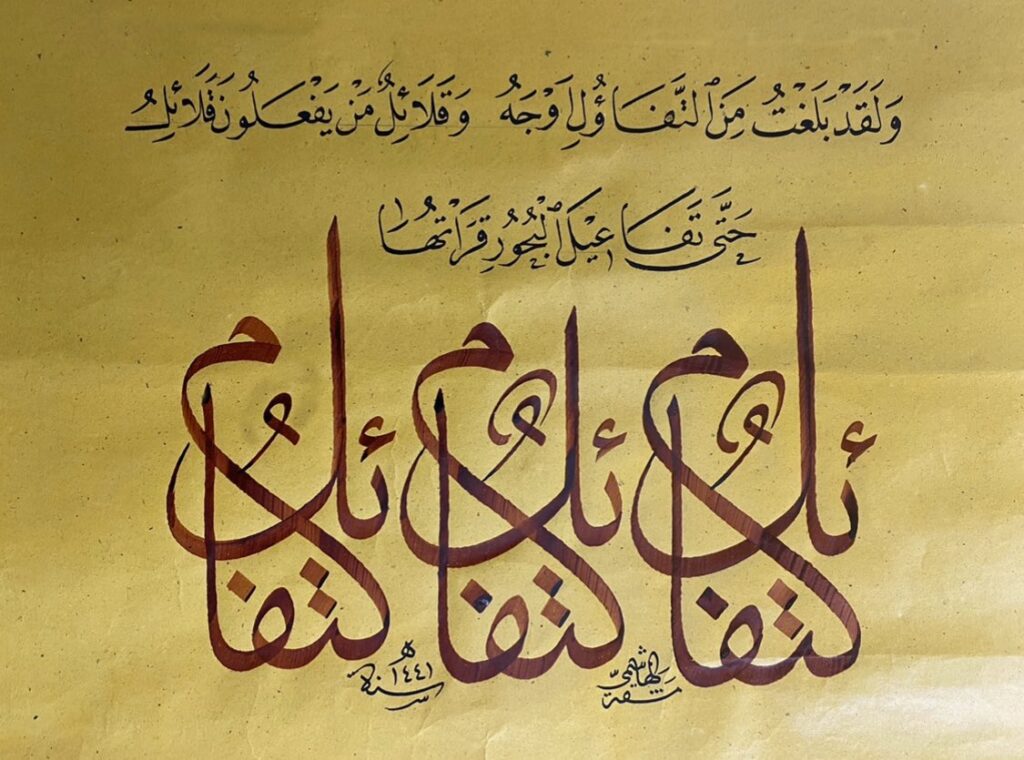 وَلَقَدْ بَلَغْتُ مِنَ ٱلتَّفَاؤُلِ اَوْجَهُ وَقَلَائِلٌ مَنْ يَفْعَلُونَ قَلَائِلُ
حَتَّى تَفَاعِيلَ ٱلْبُحُورِ قَرَأْتُهَا
متفائلٌ متفائلٌ متفائلُ
مشقه الهاشمي
سنة ١٤٤١ هـ